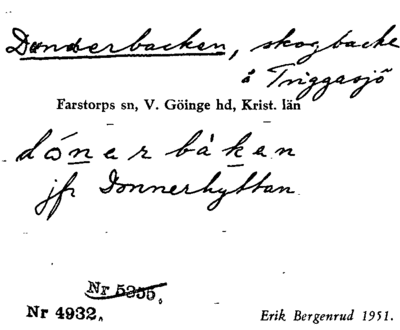 Dunderbacken, skogbacke
å Triggasjö
Farstorps sn, V. Göinge hd, Krist. län
dónerbàken
jfr Donnerhyttan
Nr 5355.
Nr 4932.
Erik Bergenrud 1951.